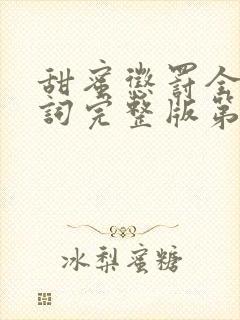 甜蜜懲罰全
詞完整版第
冰梨蜜糖